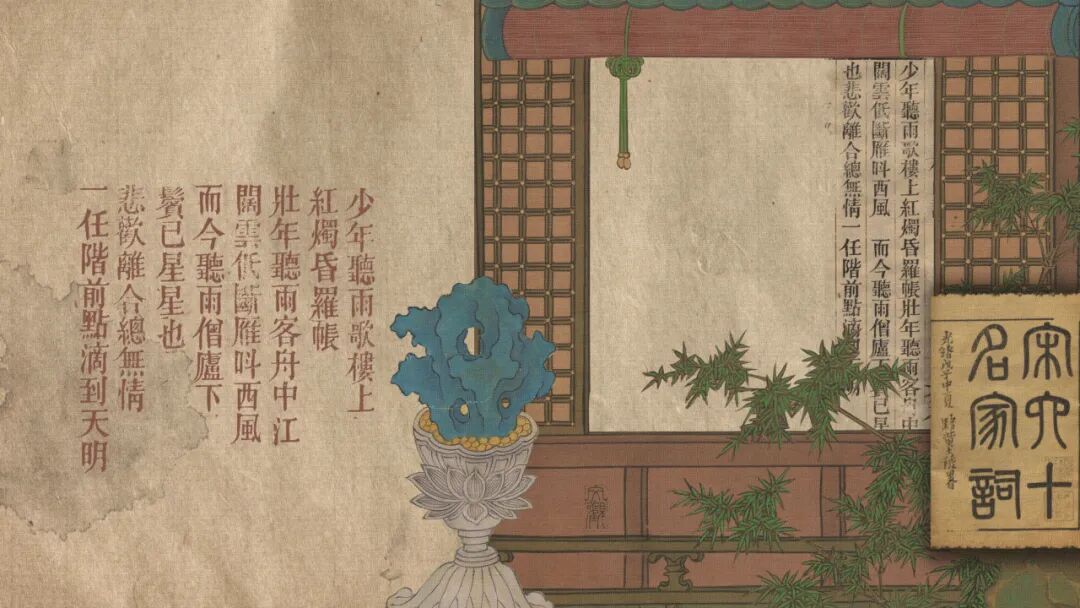 少年聽雨歌樓上
紅燭昏羅帳
壯年聽雨客舟中江
闊雲低斷雁呌西風
而今聽雨僧廬下
鬢已星星也
悲歡離合總無情
一任階前點滴到天明
少年聽雨歌樓上紅燭昏羅帳壯年聽雨客舟中
闊雲低斷雁呌西風 而今聽雨僧廬下 已星
也悲歡離合總無情一任階前點滴
宋六十
名家詞
光緒戊子中夏